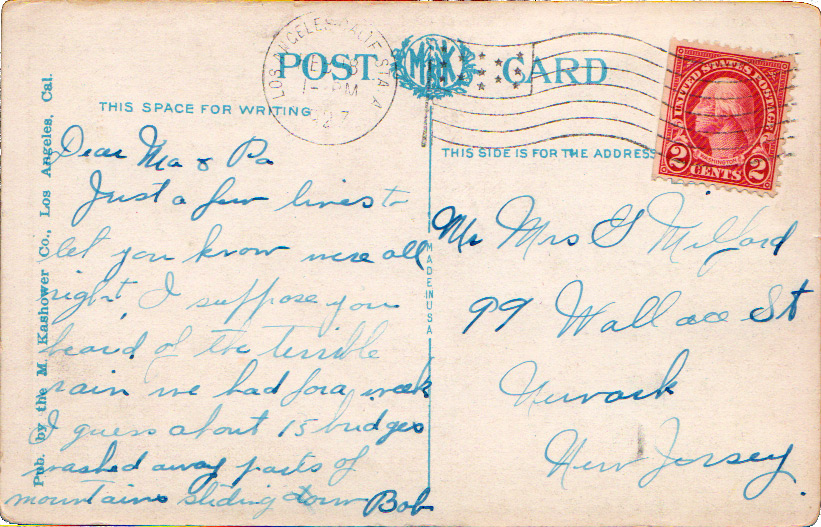 POST CARD
M K
LOS ANGELES CALIF. STA. A
FEB 8
1- PM
1927
THIS SPACE FOR WRITING
THIS SIDE IS FOR THE ADDRESS
UNITED STATES POSTAGE
WASHINGTON
2 CENTS 2
Pub. by the M. Kashower Co., Los Angeles, Cal.
MADE IN USA
Dear Ma & Pa
Just a few lines to
let you know were all
right, I suppose you
heard of the terrible
rain we had for a week
I guess about 15 bridges
washed away parts of
mountains sliding down Bob
Mr Mrs G Milford
99 Wallace St
Newark
New Jersey.